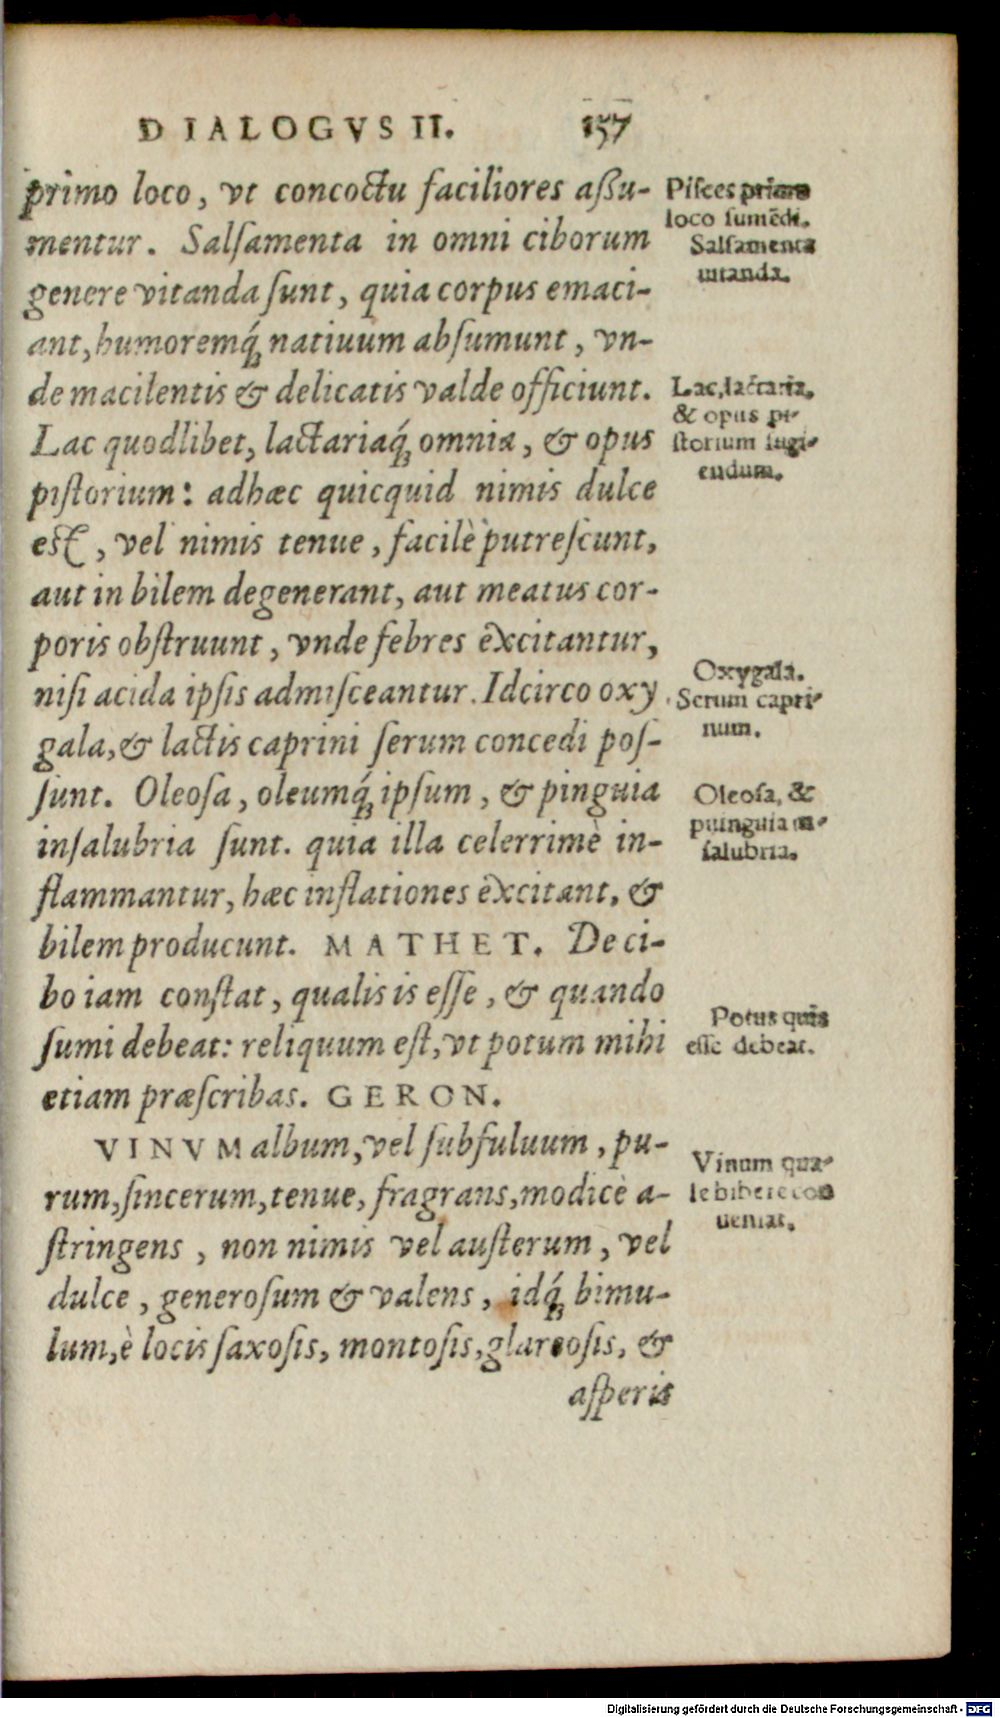 DIALOGVS II. 157
primo loco, vt concoctu faciliores aßu-
mentur. Salſamenta in omni ciborum
genere vitanda ſunt, quia corpus emaci-
ant, humoremq́ꝫ natiuum abſumunt, vn-
de macilentis & delicatis valde officiunt.
Lac quodlibet, lactariaq́ꝫ omnia, & opus
piſtorium: adhæc quicquid nimis dulce
eſt, vel nimis tenue, facilè putreſcunt,
aut in bilem degenerant, aut meatus cor-
poris obſtruunt, vnde febres excitantur,
niſi acida ipſis admiſceantur. Idcirco oxy
gala, & lactis caprini ſerum concedi poſ-
ſunt. Oleoſa, oleumq́ꝫ ipſum, & pinguia
inſalubria ſunt. quia illa celerrimè in-
flammantur, hæc inflationes excitant, &
bilem producunt. MATHET. De ci-
bo iam conſtat, qualis is eſſe, & quando
ſumi debeat: reliquum eſt, vt potum mihi
etiam præſcribas. GERON.
VINVM album, vel ſubfuluum, pu-
rum, ſincerum, tenue, fragrans, modicè a-
ſtringens, non nimis vel auſterum, vel
dulce, generoſum & valens, idq́ꝫ bimu-
lum, è locis ſaxoſis, montoſis, glareoſis, &
aſperis
Piſces primo
loco ſumēdi.
Salſamenta
uitanda.
Lac, lactaria,
& opus pi-
ſtorium fugi-
endum.
Oxygala.
Serum capri-
num.
Oleoſa, &
puinguia in-
ſalubria.
Potus quis
eſſe debeat.
Vinum qua-
le bibere con
ueniat.
Digitalisierung gefördert durch die Deutsche Forschungsgemeinschaft - DFG